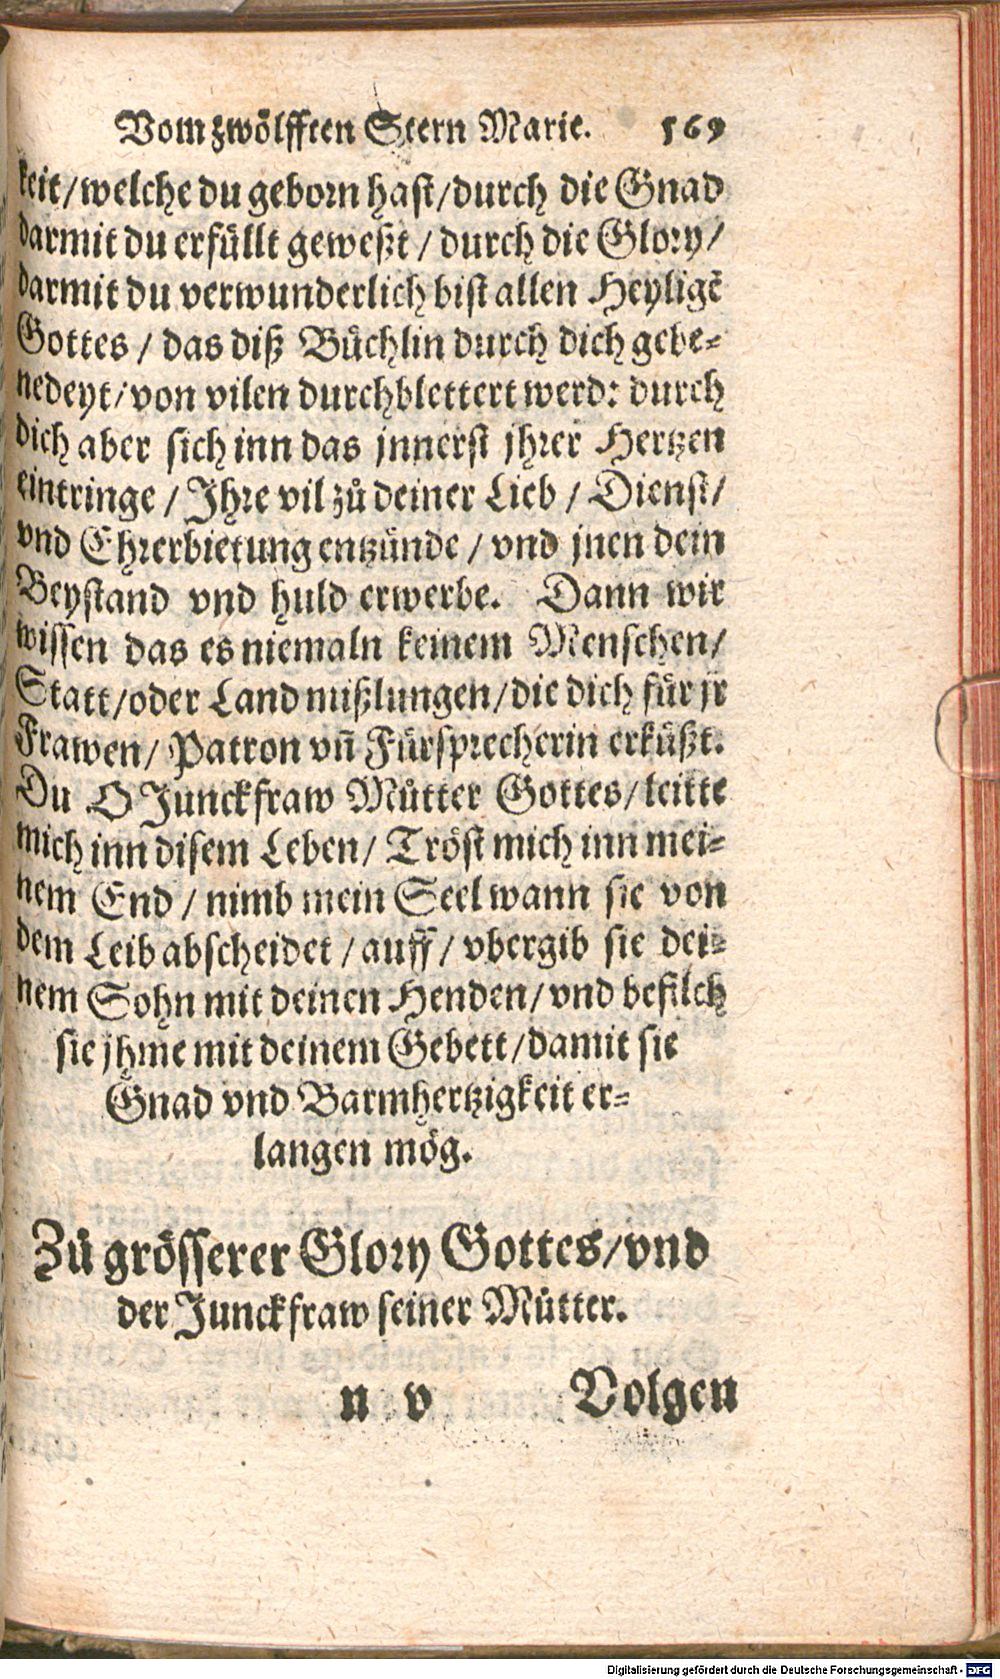 Vom zwölfften Stern Marie. 569
keit/welche du geborn hast/durch die Gnad
darmit du erfüllt geweßt / durch die Glory/
darmit du verwunderlich bist allen Heyligē
Gottes / das diß Bůchlin durch dich gebe-
nedeyt/von vilen durchblettert werd: durch
dich aber sich inn das jnnerst jhrer Hertzen
eintringe / Jhre vil zů deiner Lieb / Dienst/
vnd Ehrerbietung entzünde / vnd jnen dein
Beystand vnd huld erwerbe. Dann wir
wissen das es niemaln keinem Menschen/
Statt/oder Land mißlungen/die dich für jr
Frawen/ Patron vñ Fürsprecherin erküßt.
Du O Junckfraw Můtter Gottes/leitte
mich inn disem Leben/ Tröst mich inn mei-
nem End / nimb mein Seel wann sie von
dem Leib abscheidet / auff/ vbergib sie dei-
nem Sohn mit deinen Henden/vnd befilch
sie jhme mit deinem Gebett/damit sie
Gnad vnd Barmhertzigkeit er-
langen mög.
Zů grösserer Glory Gottes/vnd
der Junckfraw seiner Můtter.
n v Volgen
Digitalisierung gefördert durch die Deutsche Forschungsgemeinschaft - DFG